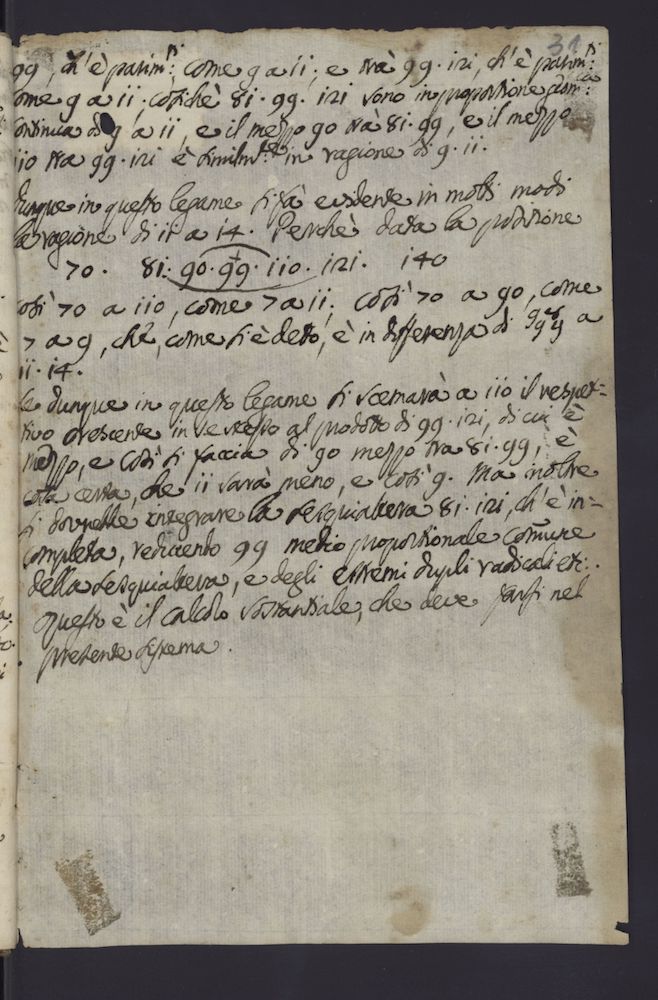 31
99, ch'è parim.te come 9 a 11; e trà 99. 121, ch'è parim.te
come 9 a 11. cosichè 81. 99. 121 sono in proporzione geom.ca
continua di 9 a 11, e il mezzo 90 trà 81. 99, e il mezzo
110 tra 99. 121 è similm.te in ragione di 9. 11.
Dunque in questo legame si fà evidente in molti modi
la ragione di 11 a 14. Perchè data la posizione
70. 81. 90. 99. 110. 121. 140
così 70 a 110, come 7 a 11; così 70 a 90, come
7 a 9, che, come si è detto, è in differenza di a
11. 14.
Se dunque in questo legame si scemarà a 110 il respet=
tivo crescente in se stesso al prodotto di 99. 121, di cui è
mezzo, e così si faccia di 90 mezzo tra 81. 99, è
cosa certa, che 11 sarà meno, e così 9. Ma inoltre
si dovrebbe integrare la sesquialtera 81. 121, ch'è in=
completa, reducendo 99 medio proporzionale comune
della sesquialtera, e degli estremi dupli radicali etc:.
Questo è il calcolo sostanziale, che deve farsi nel
presente sistema.